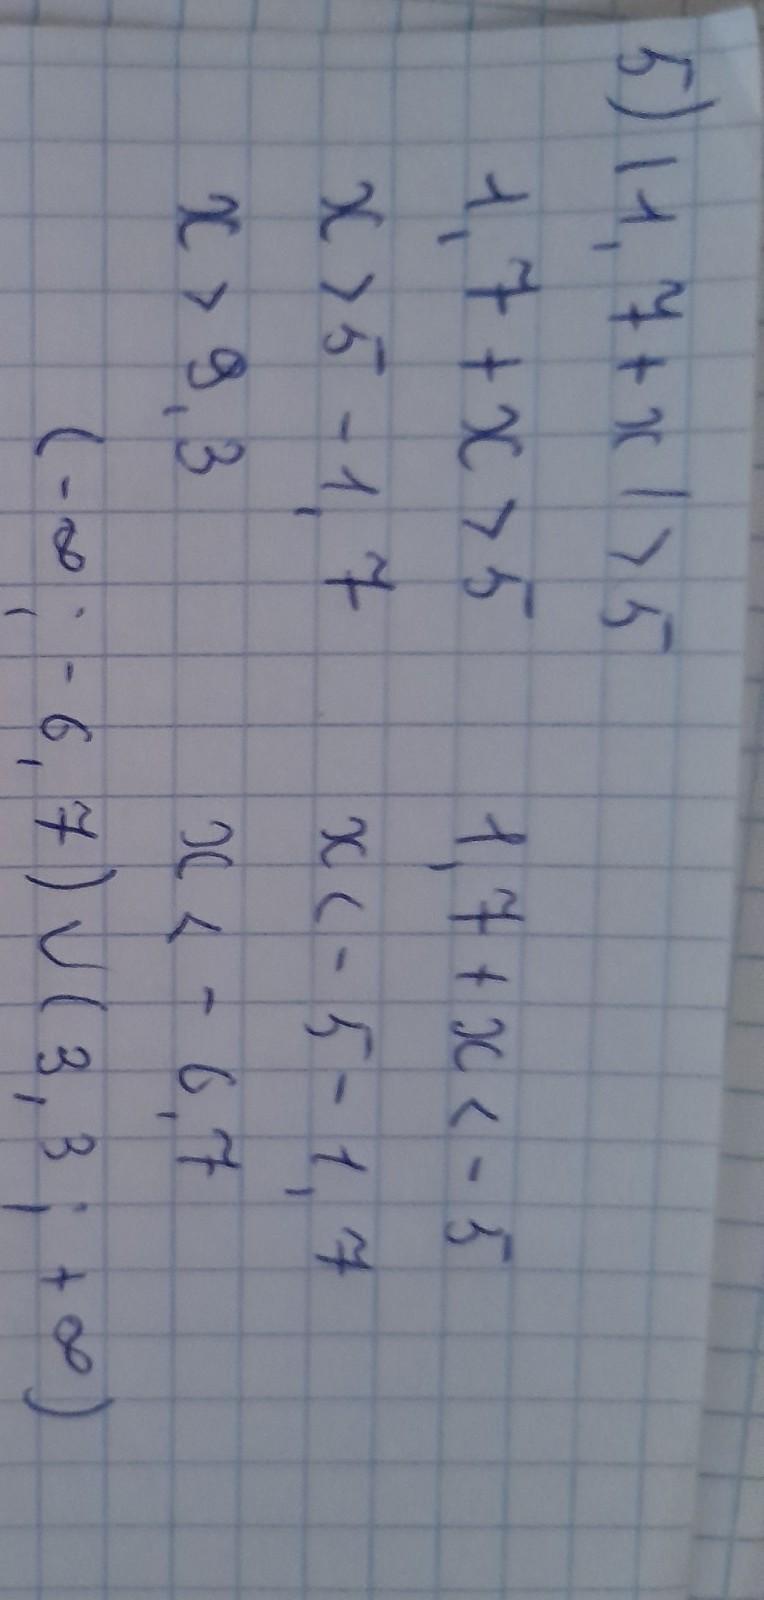 5) |1,7+x|>5
1,7+x>5 1,7+x<-5
x>5-1,7 x<-5-1,7
x>9,3 x<-6,7
(-∞;-6,7)∪(3,3;+∞)